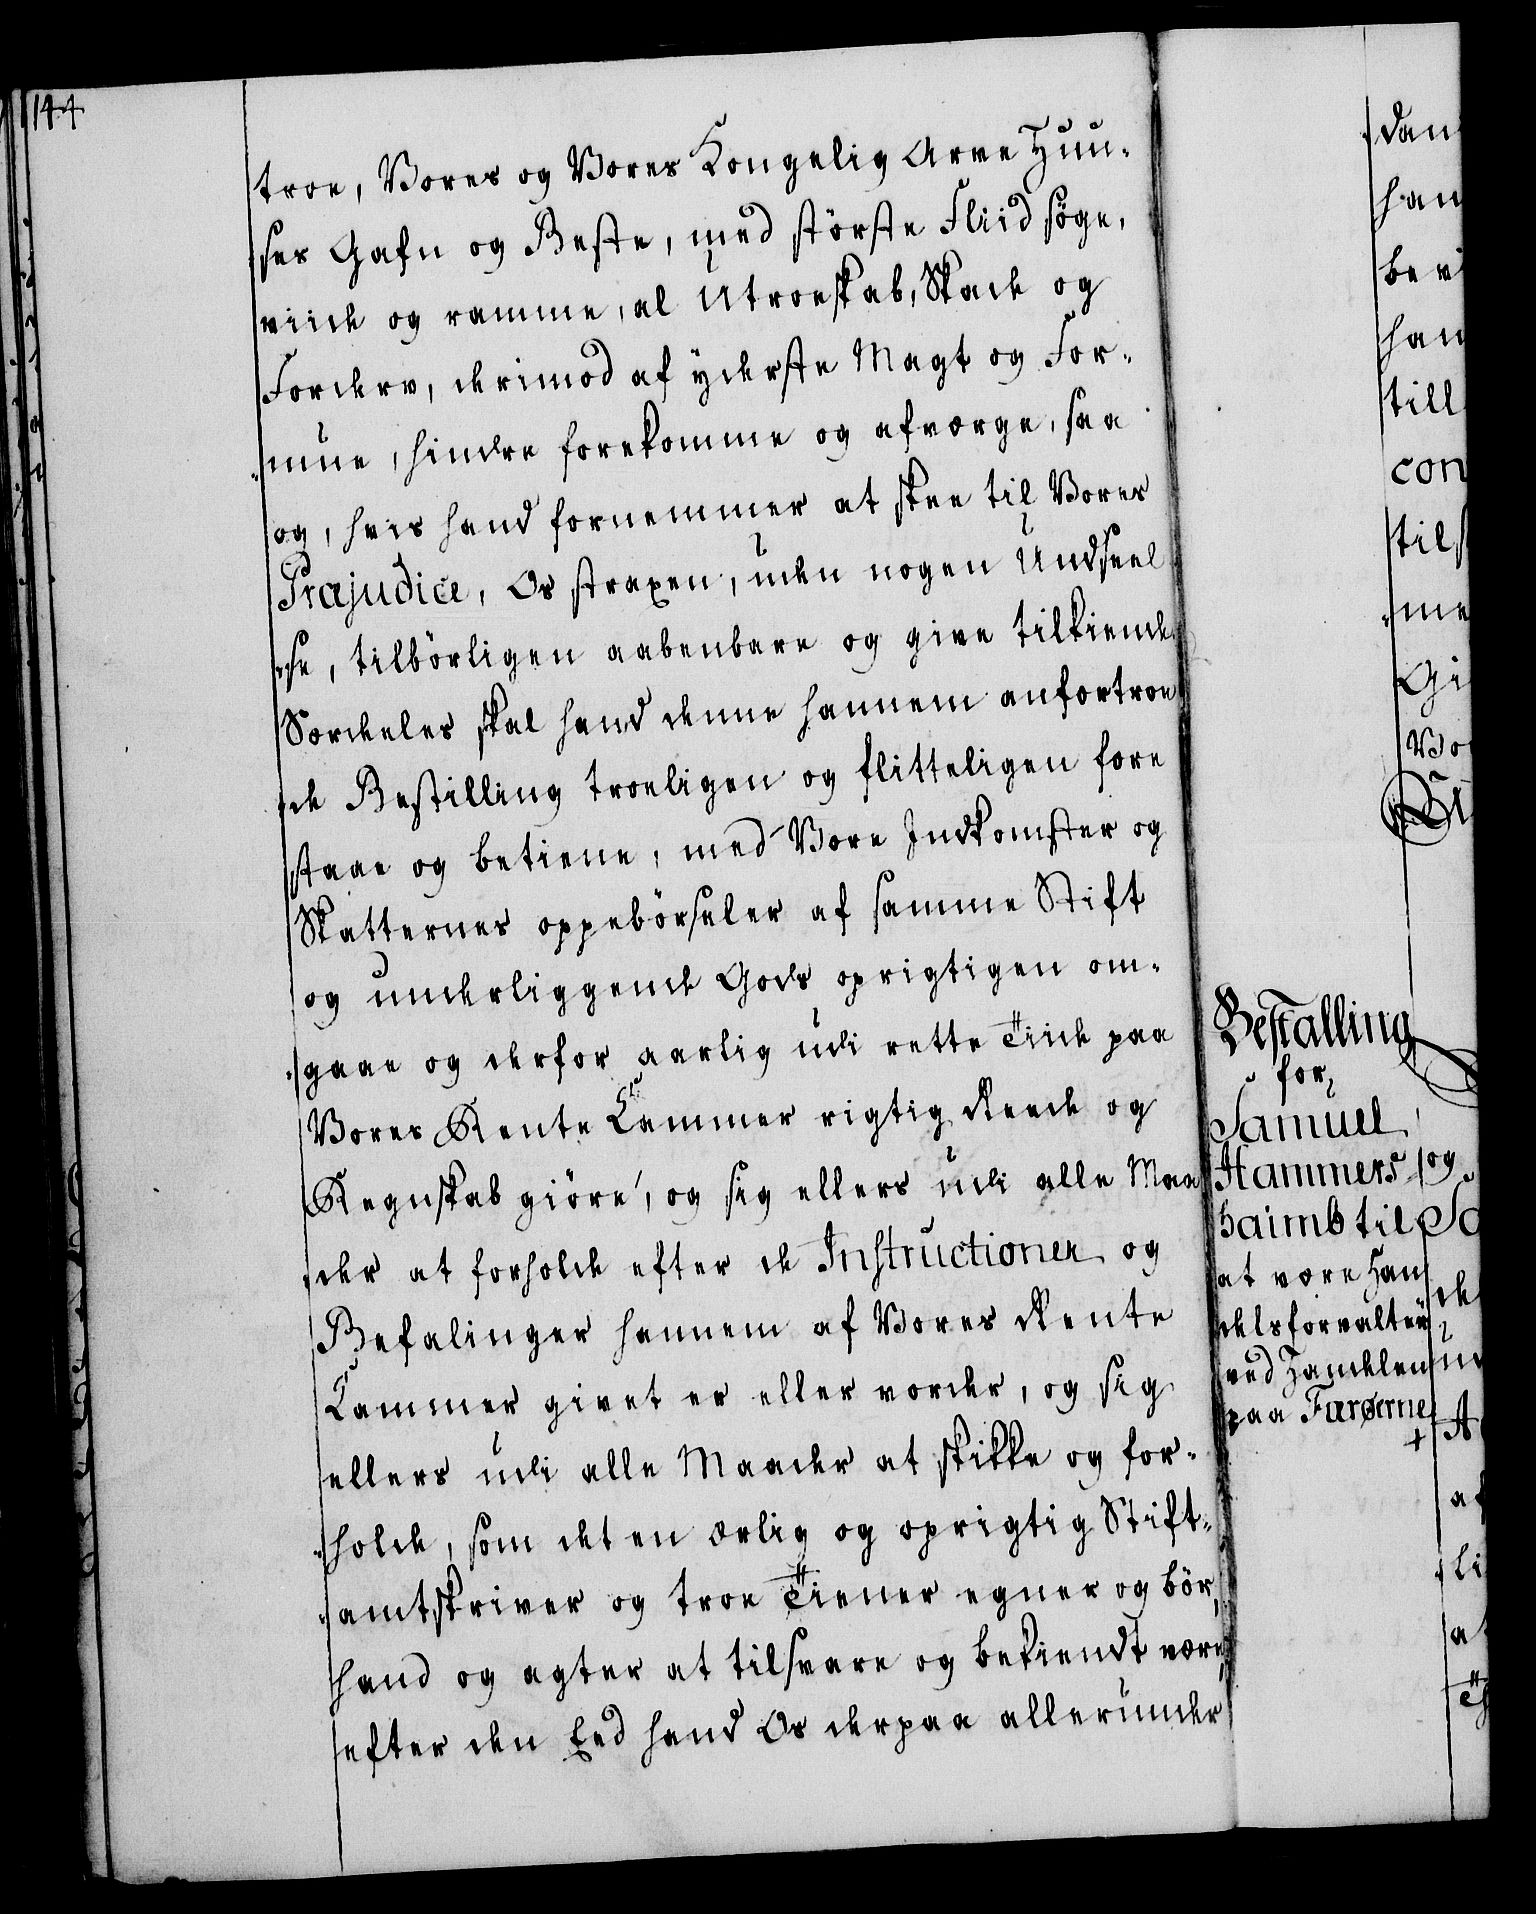 144
troe, Vores og Vores Kongelig Arve Huu-
ses Gafn og Beste, med störste Fliid söge,
viide og ramme, al Utroeskab, Skade og
Forderv, derimod af yderste Magt og For-
mue, hindre forekomme og afværge, saa
og, hvis hand fornemmer at skee til Vores
Præjudice, Os straxen, uden nogen Undseel
se, tilbörligen aabenbare og give tilkiende
Særdeles skal hand denne hannem anfortroe
de Bestilling troeligen og flitteligen fore
staae og betiene, med Vore Indkomster og
Skatternes oppebörseler af samme Stift
og underliggende Gods oprigtigen om-
gaae og derfor aarlig udi rette Tiide paa
Vores Rente Cammer rigtig Reede og
Regnskab giöre, og sig ellers udi alle Maa
der at forholde efter de Instructioner og
Befalinger hannem af Vores Rente
Cammer givet er eller vorder, og sig
ellers udi alle Maader at skikke og for-
holde, som det en ærlig og oprigtig Stift-
amtskriver og troe Tiener egner og bör,
hand og agter at tilsvare og bekiendt være,
efter den Eed hand Os derpaa allerunder
Bestalling
for
Samuel
Hammers
haimb til
at være Han
delsforvalter
ved Handelen
paa Færøerne
+
dan
han
bev
han
till
con
tils
me
Gi
Vo
og
So
de
A
af
li
a